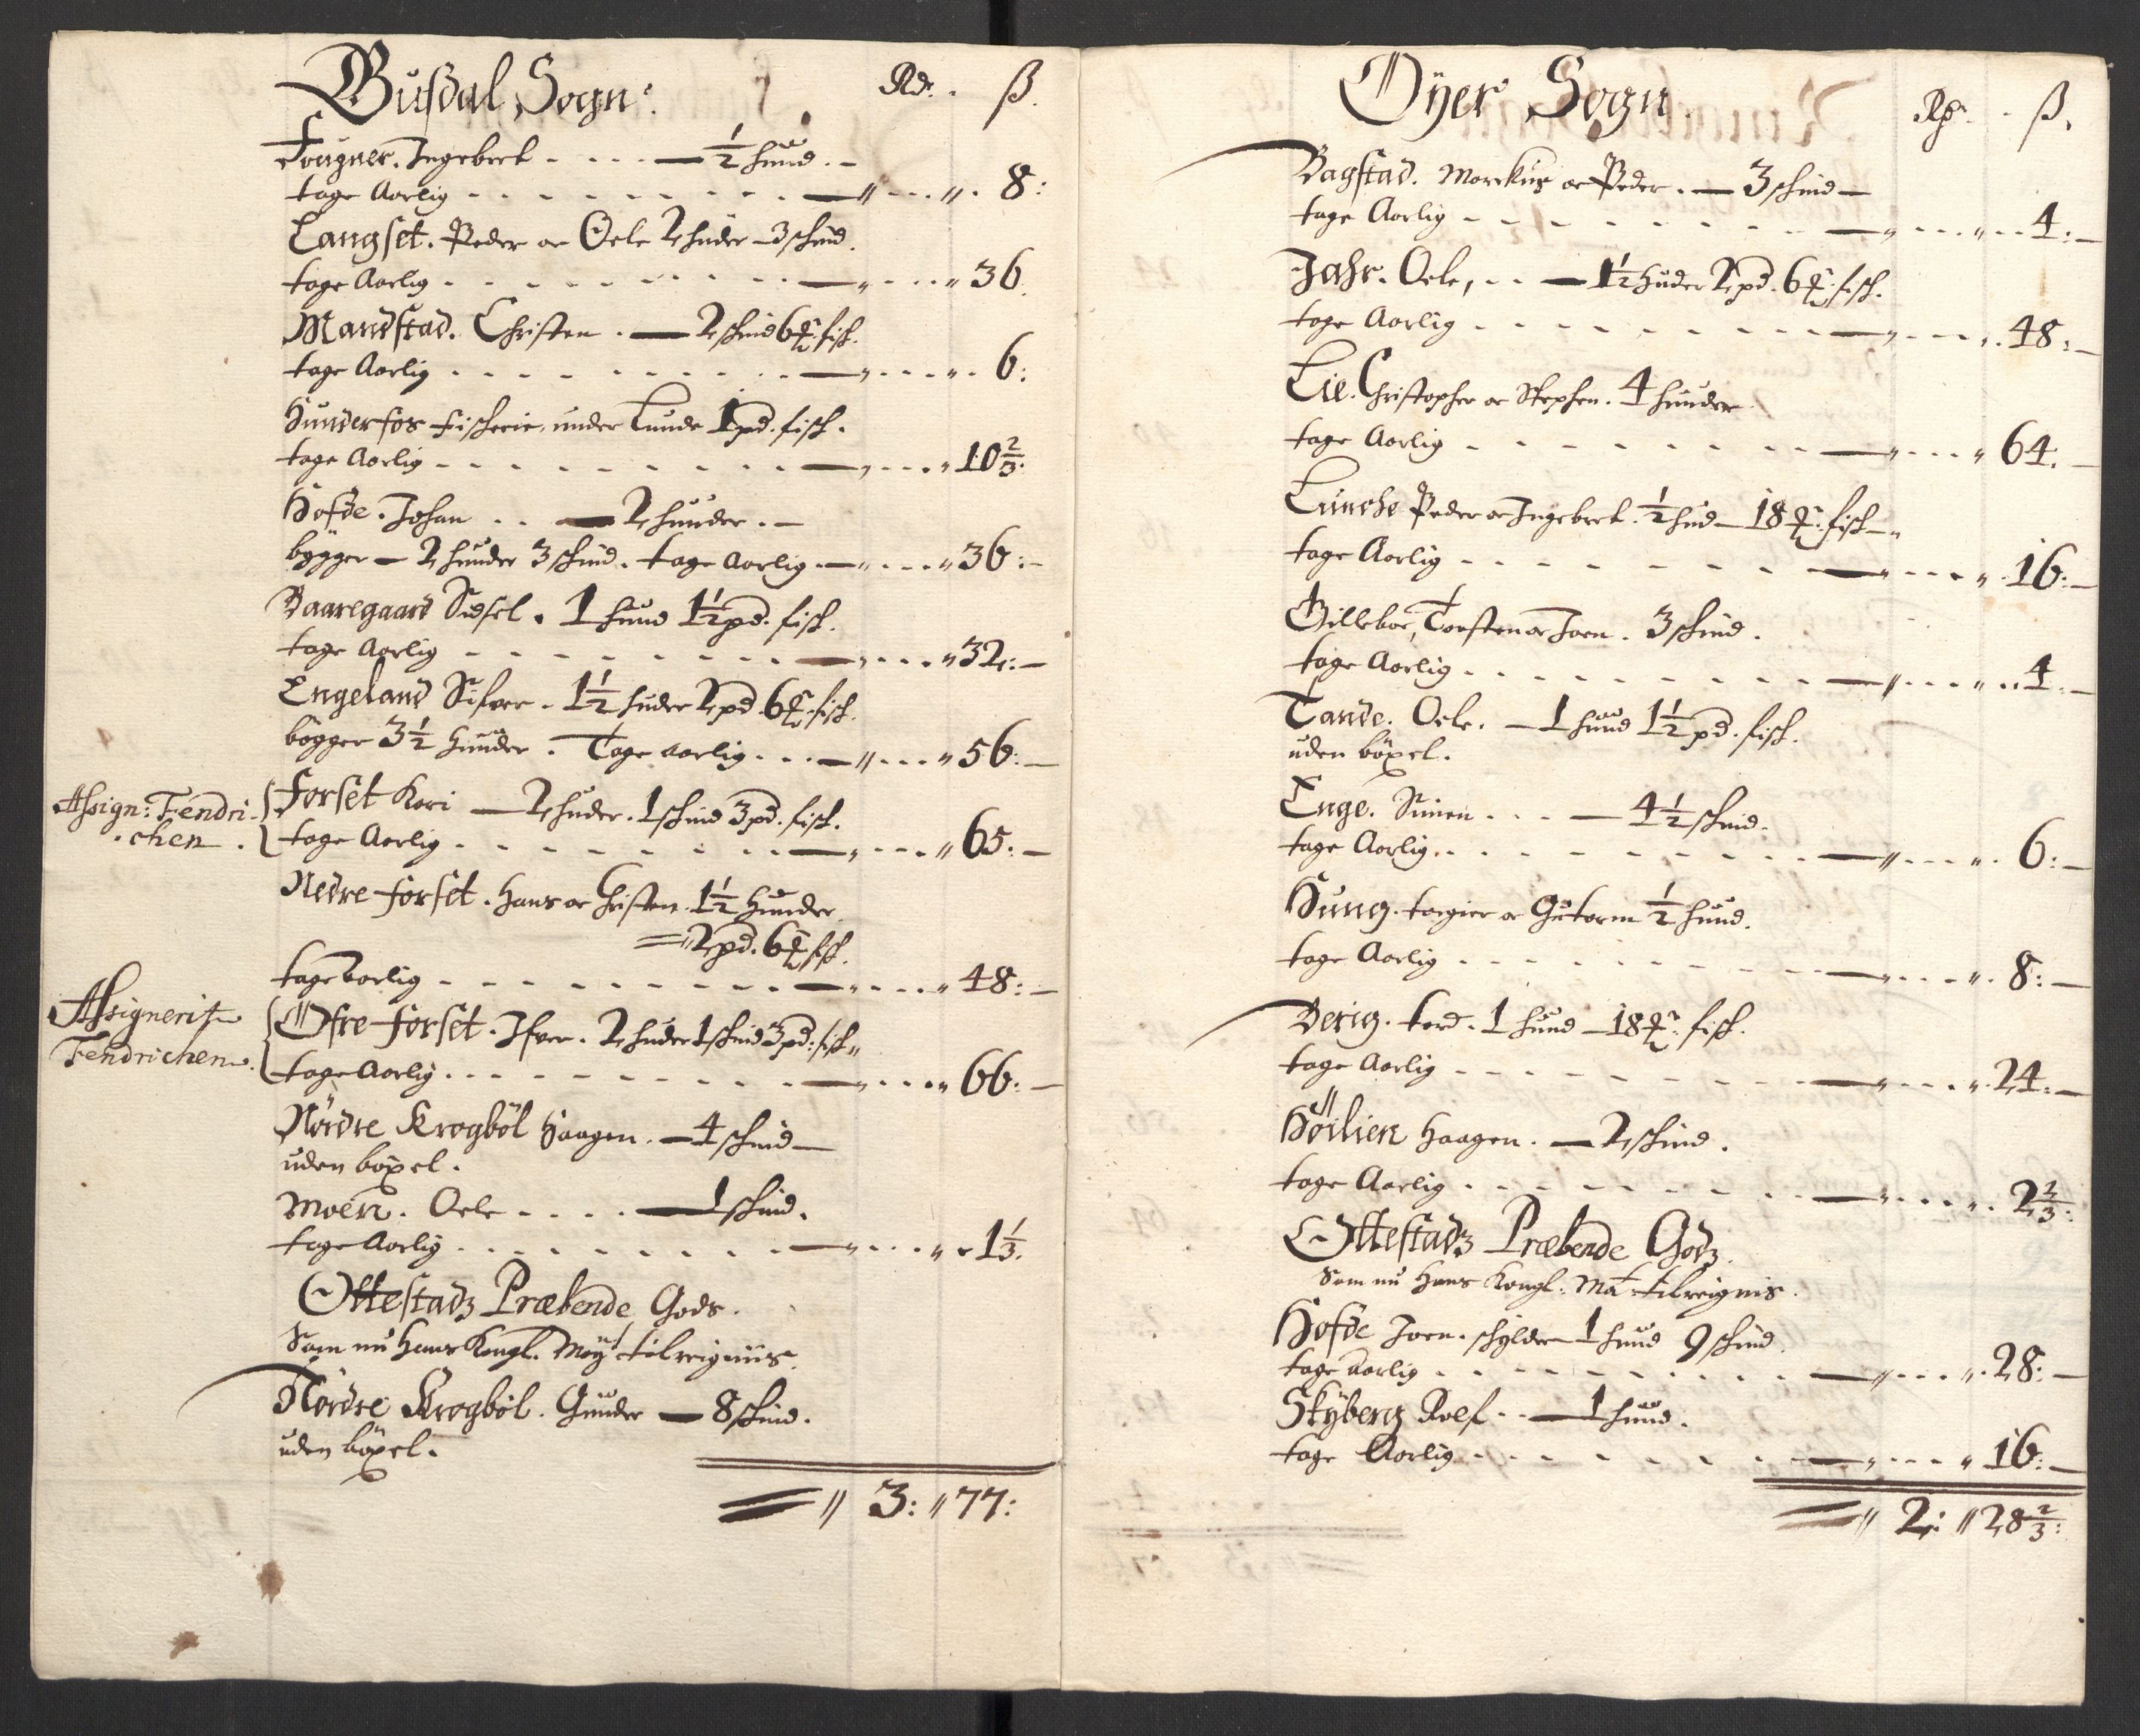 Gusdal Sogn: Rd. ß.
Fougner. Ingebret - - - - — 1/2 hund. -
tage Aarlig - - - - - - - - — " - - - ". 8:
Langset. Peder oc Oele 2 huder - 3 schind.
tage Aarlig - - - - - - - - — " - - - " 36.
Mandstad. Christen. — 2 schind 6 fisk.
tage Aarlig - - - - - - - - — " - - - ". 6:
Hunderfos fischerie, under Lunde 1 pd. fisk.
tage Aarlig - - - - - - - - — " - - - " 10 2/3:
Hofde. Johan - - — 2 hunder. -
bygger — 2 hunder 3 schind. tage Aarlig. — " - - - " 36: -
Baaregaard Sidsel. 1 hund 1 1/2 pd. fisk.
tage Aarlig - - - - - - - - — " - - - " 32: —
Engeland Sifver. 1 1/2 huder 2 pd. 6 fisk.
bögger 3 1/2 hunder. Tage aarlig - - - — " - - - " 56: —
Assign: Fendri-
chen.
Forset Kari — 2 huder. 1 schind 3 pd. fisk.
tage Aarlig - - - - - - - - — " - - - " 65: —
Nedre forset. Hans oc Christen. 1 1/2 hunder
= " 2 pd. 6 fisk.
tage aarlig - - - - - - - - — " - - - " 48: —
Assignerit
Fendrichen.
Öfre forset. Ifver. 2 huder 1 schind 3 pd: fisk "
tage Aarlig - - - - - - - - — " - - - " 66: —
Nördre Krogböl Haagen. — 4 schind —
uden böxel.
Moen. Oele - - - - — 1 schind.
tage Aarlig - - - - - - - - — " - - - " 1 1/3.
Ottestads Præbende Gods.
Som nu Hans Kongl. Mayt tilreigniis.
Nördre Krogböl. Gunder — 8 schind.
uden böxel.
= " 3: " 77:
Öyer Sogn. Rd. - ß.
Bagstad. Markus oc Peder. — 3 schind —
tage Aarlig - - - - - - - - — " - - - " 4: —
Jahr. Oele, - - — 1 1/2 huder 2 pd. 6 fisk.
tage Aarlig - - - - - - - - — " - - - ". 48: —
Lie. Christopher oc Stephen. 4 hunder
tage Aarlig - - - - - - - - — " - - - " 64. —
Lunche Peder oc Ingebret. 1/2 hud — 18 fisk —
tage Aarlig - - - - - - - - — " - - - ". 16: —
Gilleboe, Torsten oc Joen. 3 schind.
tage Aarlig - - - - - - - - — " - - - " 4. —
Tande. Oele. — 1 hund 1 1/2 pd. fisk.
uden böxel.
Enge. Simen - - - — 4 1/2 schind.
tage Aarlig - - - - - - - - — " - - - ". 6: —
Hung. torgier oc Gutorm 1/2 hund.
tage Aarlig - - - - - - - - — " - - - ". 8: —
Berig. tord. 1 hund — 18 fisk.
tage Aarlig - - - - - - - - — " - - - ". 24: —
Höilien Haagen. — 2 schind.
tage Aarlig - - - - - - - - — " - - - ". 2 2/3:
Ottestads Præbende Gods.
Som nu Hans Kongl: Mat tilreignis.
Hofde Joen. schylder 1 hund 9 schind.
tage aarlig - - - - - - - - — " - - - ". 28: —
Skyberg Roef - - — 1 hund.
tage Aarlig - - - - - - - - — " - - - " 16: —
= " 2: " 28 2/3: